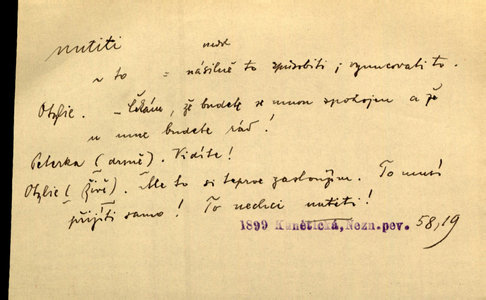 nutiti ned.
~ to = násilně to způsobiti; vynucovati to.
Otylie. – Čekám, že budete se mnou spokojen a že
u mne budete rád!
Peterka (drsně). Vidíte!
Otylie (živě). Ale to si teprve zasloužím. To musí
přijíti samo! To nechci nutiti!
1899 Kunětická, Nezn. pev. 58,19